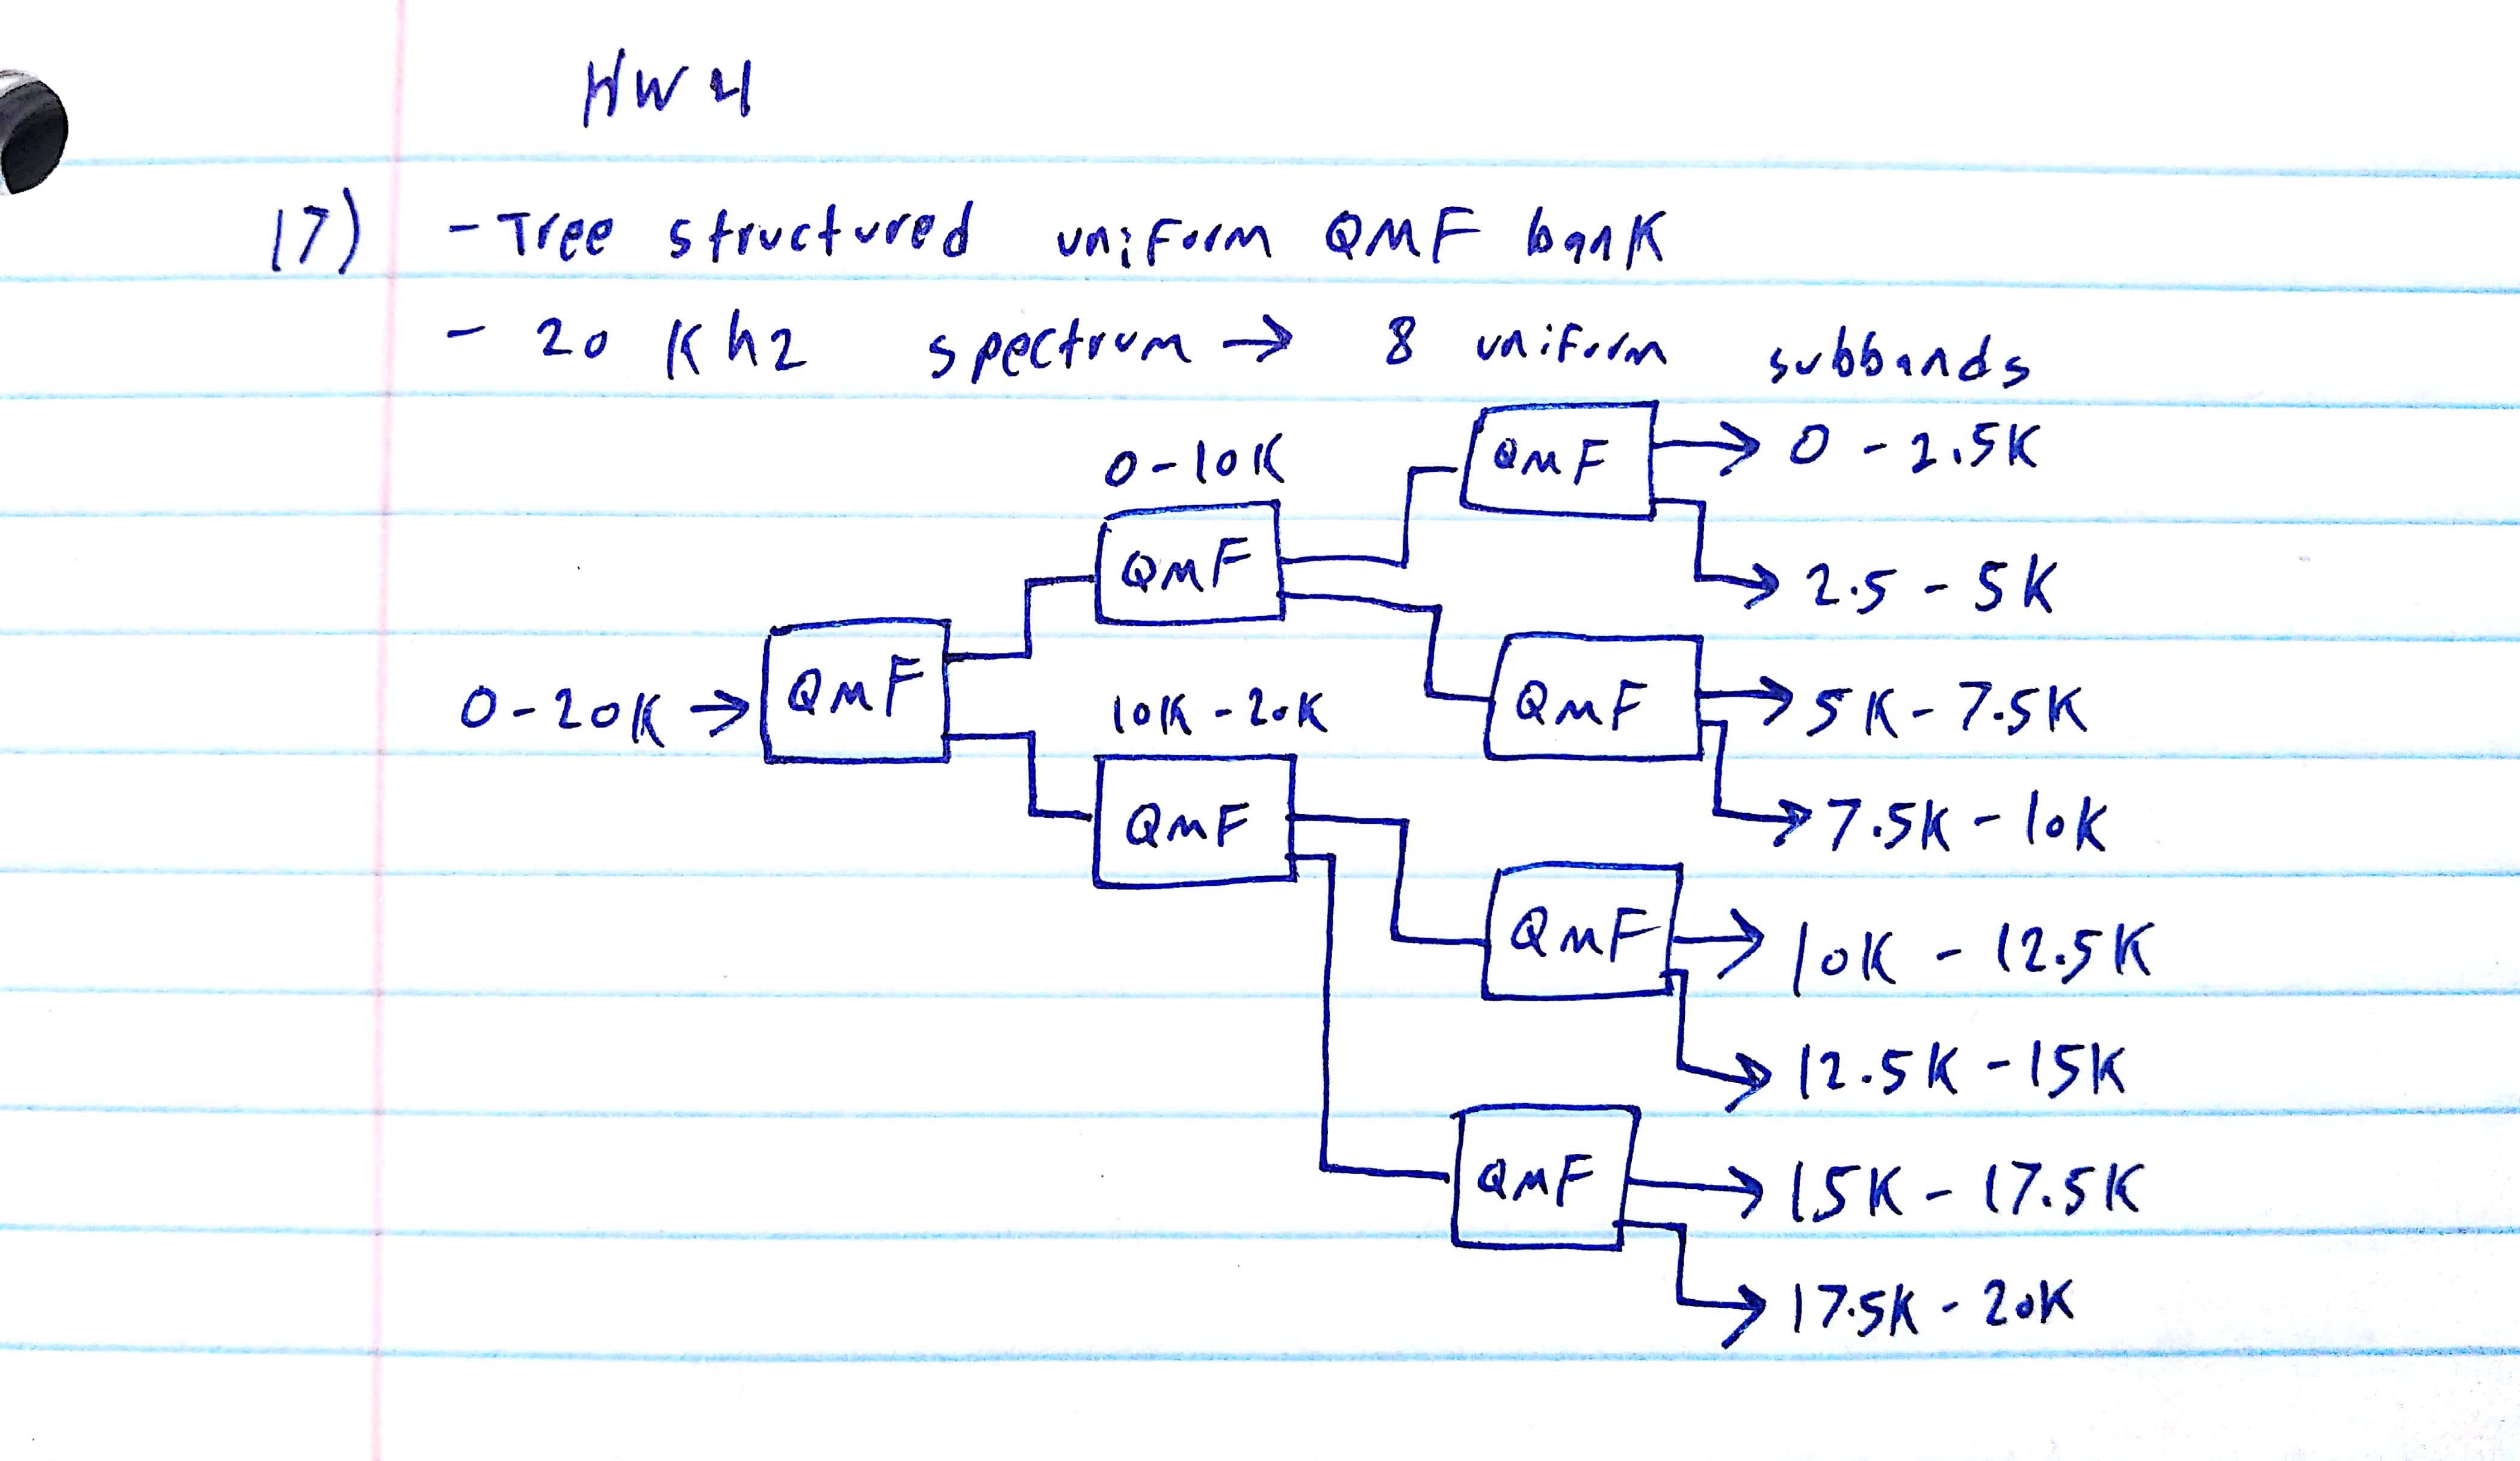 HW 4
17) - Tree structured uniform QMF bank
- 20 Khz spectrum → 8 uniform subbands
0-10K
QMF → 0 - 2.5K
QMF
→ 2.5 - 5K
0-20K → QMF
10K - 20K
QMF → 5K - 7.5K
QMF
→ 7.5K - 10K
QMF → 10K - 12.5K
→ 12.5K - 15K
QMF → 15K - 17.5K
→ 17.5K - 20K